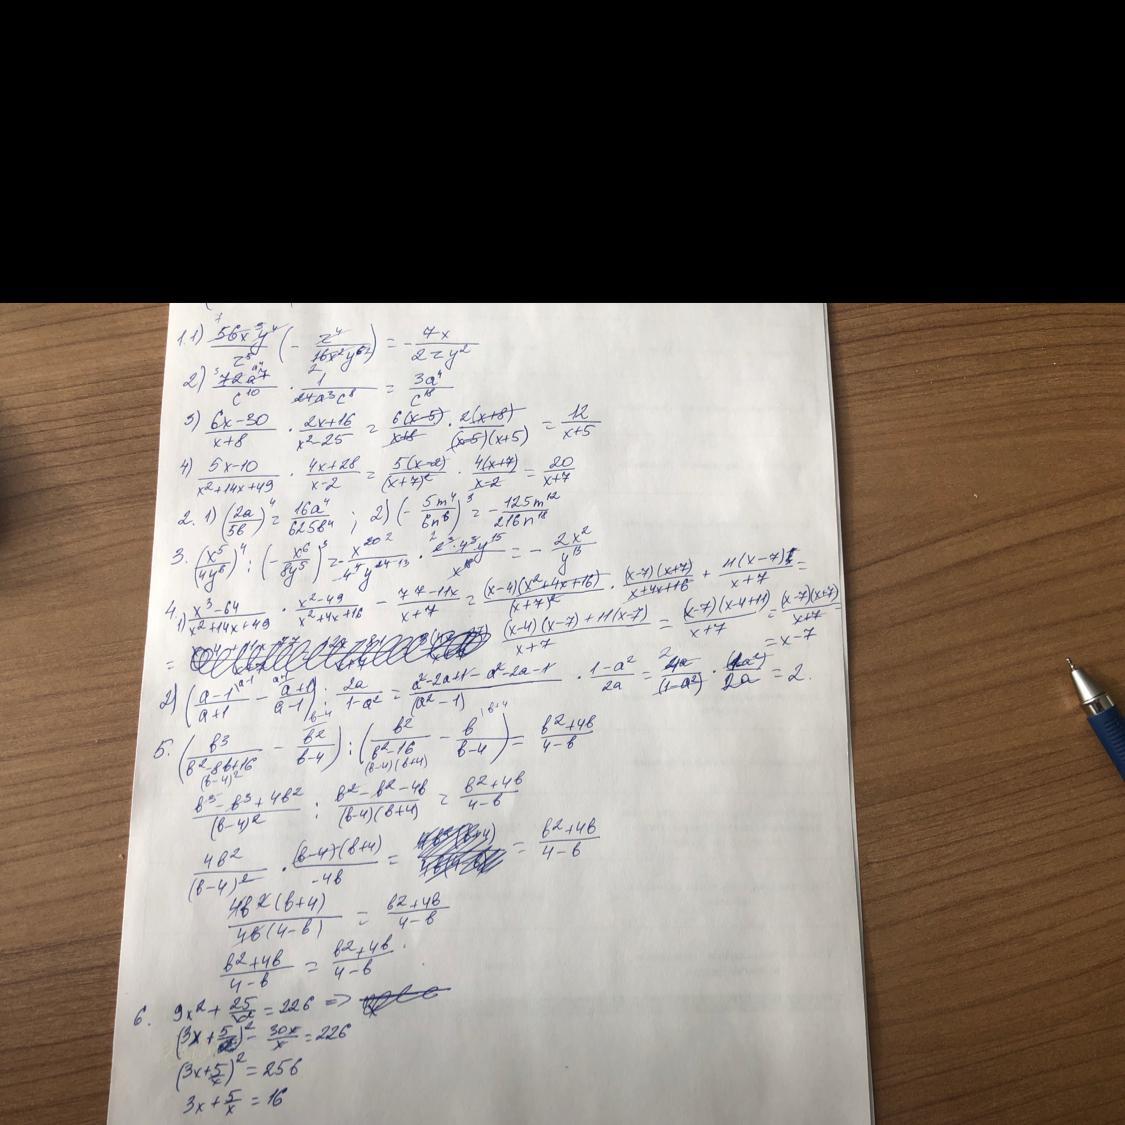 1.1) 56x³y⁴/z⁵ (− z⁴/16x²y⁶) = − 7x/2zy²
2) 72a⁷/c¹⁰ · 1/24a³c⁸ = 3a⁴/c¹⁸
3) 6x−30/x+8 · 2x+16/x²−25 = 6(x−5)/x+8 · 2(x+8)/(x−5)(x+5) = 12/x+5
4) 5x−10/x²+14x+49 · 4x+28/x−2 = 5(x−2)/(x+7)² · 4(x+7)/x−2 = 20/x+7
2. 1) (2a/5b)⁴ = 16a⁴/625b⁴ ; 2) (− 5m⁴/6n⁶)³ = − 125m¹²/216n¹⁸
3. (x⁵/4y⁶)⁴ : (− x⁶/8y⁵)³ = = − 2x²/y¹³
4. 1) x³−64/x²+14x+49 · x²−49/x²+4x+16 − 77−11x/x+7 = (x−4)(x²+4x+16)/(x+7)² · (x−7)(x+7)/x+4x+16 + 11(x−7)/x+7 =
= (x−4)(x−7)+11(x−7)/x+7 = (x−7)(x−4+11)/x+7 = (x−7)(x+7)/x+7 =
= x−7
2) (a−1/a+1 − a+1/a−1) : 2a/1−a² = a²−2a+1−a²−2a−1/(a²−1) · 1−a²/2a = 4a/(1−a²) · (1−a²)/2a = 2.
5. (b³/b²−8b+16 − b²/b−4) : (b²/b²−16 − b/b−4) = b²+4b/4−b
(b−4)² (b−4)(b+4)
b³−b³+4b²/(b−4)² : b²−b²−4b/(b−4)(b+4) = b²+4b/4−b
4b²/(b−4)² · (b−4)(b+4)/−4b = = b²+4b/4−b
4b²(b+4)/4b(4−b) = b²+4b/4−b
b²+4b/4−b = b²+4b/4−b .
6. 9x² + 25/x² = 226 =>
(3x + 5/x)² − 30x/x = 226
(3x+5/x)² = 256
3x + 5/x = 16